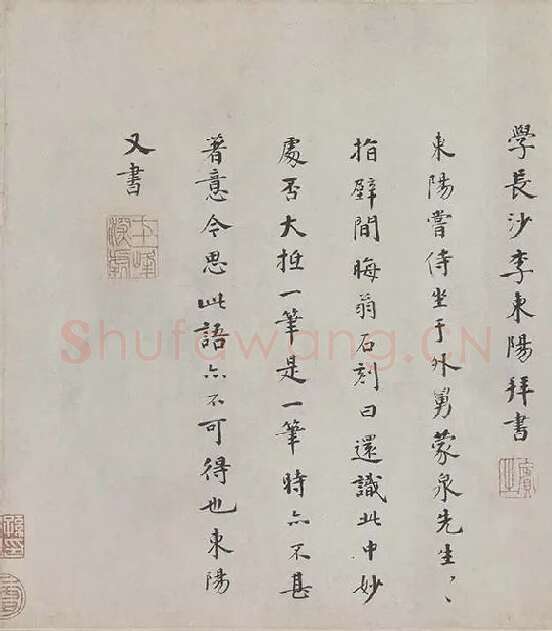 學長沙李東陽拜書
東陽嘗侍坐于外舅蒙泉先生〻
指壁間晦翁石刻曰還識此中妙
處否大抵一筆是一筆時亦不甚
著意今思此語亦不可得也東陽
又書
Shufawang.CN